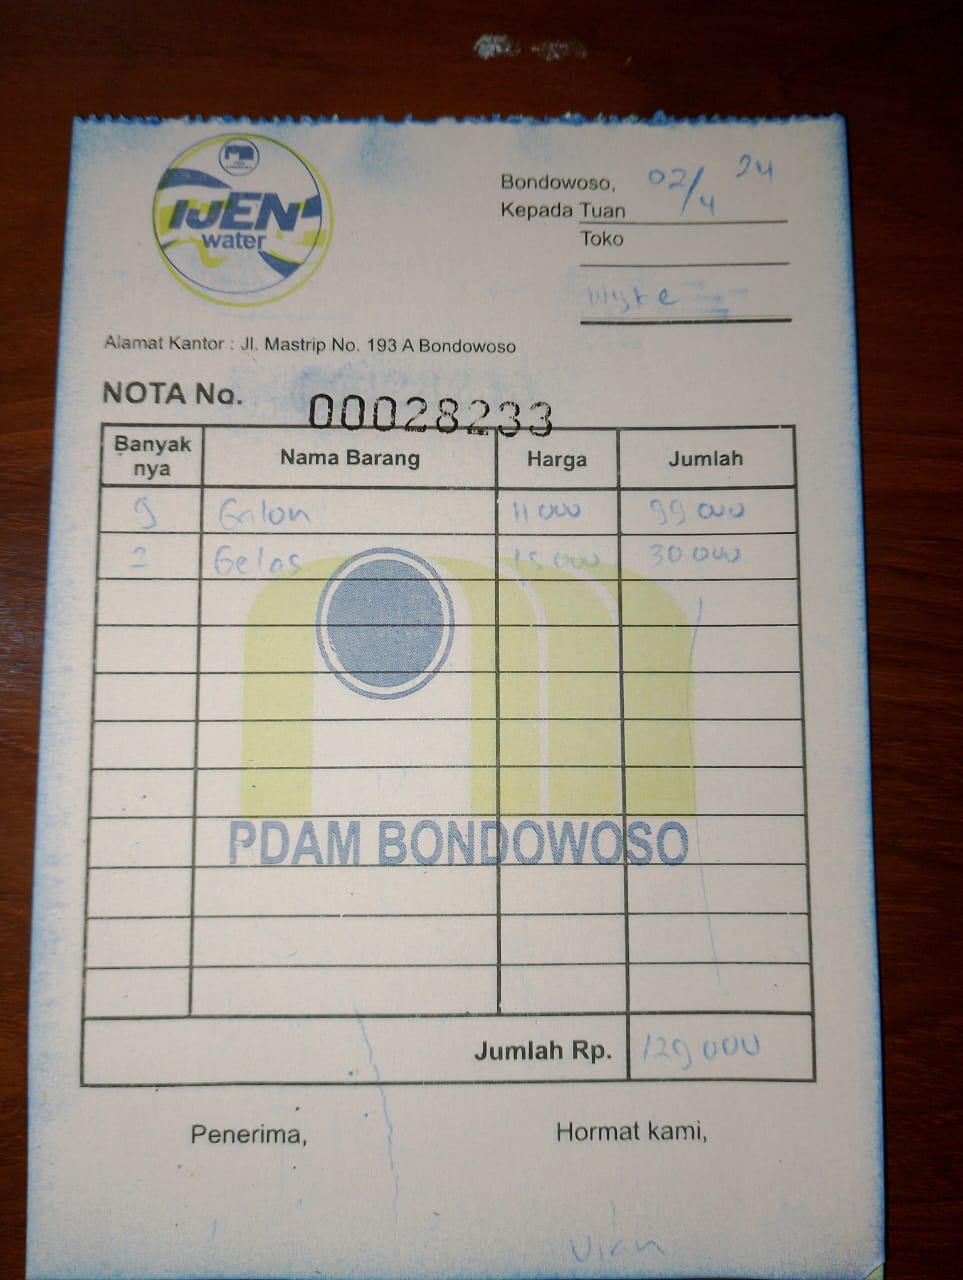 IJEN
water
Bondowoso, 02/4 24
Kepada Tuan
Toko
Alamat Kantor : Jl. Mastrip No. 193 A Bondowoso
NOTA No. 00028233
Banyak nya Nama Barang Harga Jumlah
9 Galon 11 000 99 000
2 Gelas 15 000 30 000
PDAM BONDOWOSO
Jumlah Rp. 129 000
Penerima, Hormat kami,